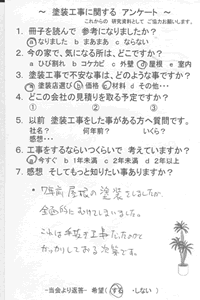 ～ 塗装工事に関する アンケート ～
これからの 研究資料として ご協力お願いします。
1. 冊子を読んで 参考になりましたか?
a なりました b まあまあ c ならない
2. 今の家で、気になる所は、どこですか?
a ひび割れ b コケカビ c 外壁 d 屋根 e 室内
3. 塗装工事で不安な事は、どのような事ですか?
a 塗装店選び b 価格 c 材料 d その他
4. どこの会社の見積りを取る予定ですか?
① ② ③
5. 以前 塗装工事をした事がある方へ質問です。
社名? 何年前? いくら?
6. 工事をするならいつくらいで 考えていますか?
a 今すぐ b 1年未満 c 2年未満 d 2年以上
7. 感想 そしてもっと知りたい事ありますか?
屋根の塗装をしましたが
全面的にむけてしまいました。
これは手抜き工事だったのかと
がっかりしておる次第です。
-当会より返答- 希望 ( する ・しない )